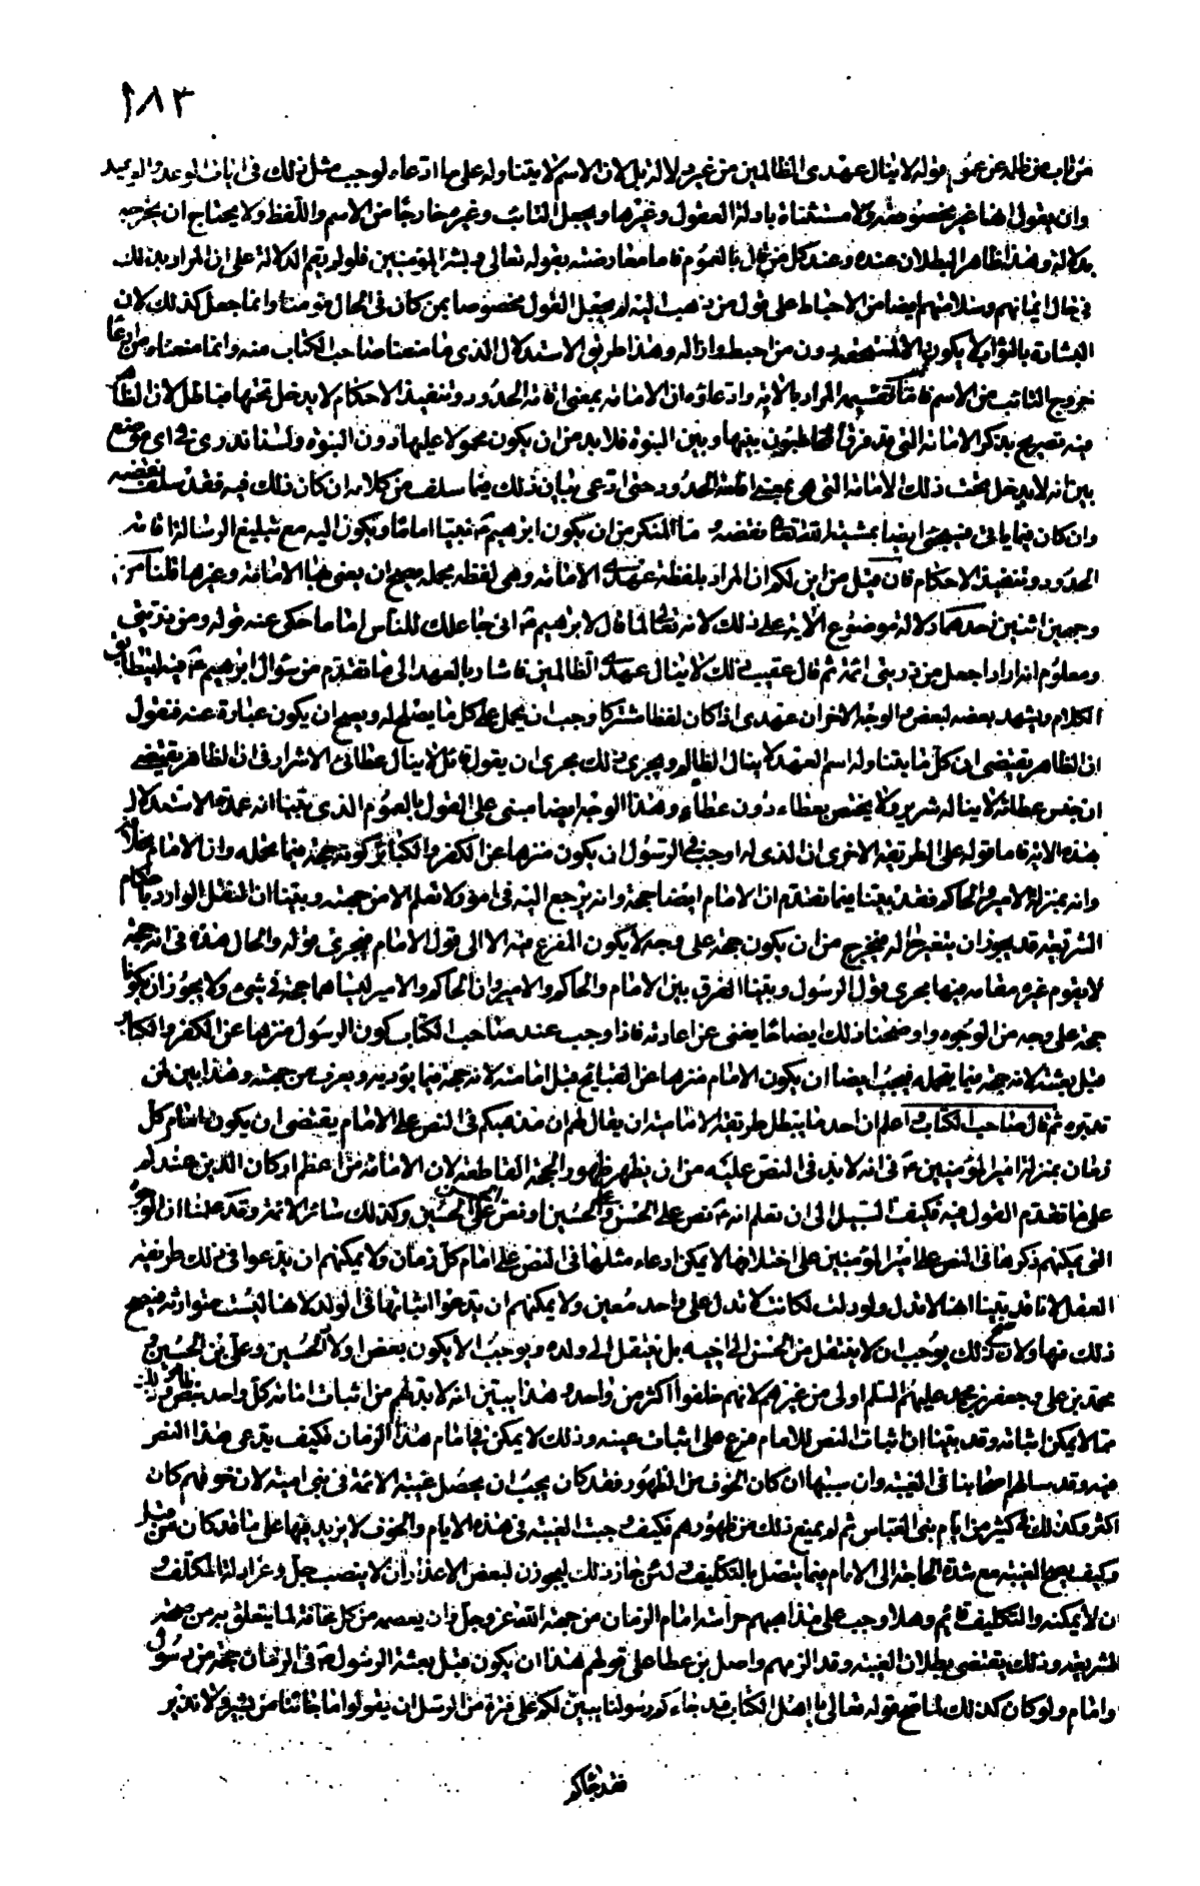 ١٨٣
من تاب من ظلمه عن عموم قوله لا ينال عهدى الظالمين من غير دلالة بل لان الاسم لا يتناوله على ما ادعاه لوجب مثل ذلك فى ايات الوعد والوعيد
وان يقول انها غير مخصوصة ولا مستثناة بادلة العقول وغيرها ويجعل التائب وغيره خارجا من الاسم واللفظ ولا يحتاج ان يخرجه
بدلالة وهذا ظاهر البطلان عنده وعند كل من قال بالعموم فاما معارضته بقوله تعالى وبشر المؤمنين فلو لم يقم الدلالة على ان المراد بذلك
فى حال ايمانهم وسلامتهم ايضا من الاحباط على قول من ذهب اليه لم يقبل القول مخصوصا بمن كان فى الحال مؤمنا وانما جعل كذلك لان
البشارة بالثواب لا يكون الا للمستحقه دون من احبطه وازاله وهذا طريق الاستدلال الذى ما منعنا صاحب الكتاب منه وانما منعناه من ادعا
خروج التائب من الاسم فاما تقسيمه المراد بالاية وادعاؤه ان الامامة بمعنى اقامة الحدود وتنفيذ الاحكام لا يدخل تحتها فباطل لان الظاهر
فيه تصريح بذكر الامامة التى قد فرق المخاطبون بينها وبين النبوة فلا بد من ان يكون محمولا عليها دون النبوة ولسنا ندرى فى اى موضع
بين انه لا يدخل تحت ذلك الامامة التى هى بمعنى اقامة الحدود حتى ادعى بيان ذلك فيما سلف من كلامه ان كان ذلك فيه فقد سلف نقضه
وان كان فيما ياتى فسيجئ ايضا بمشية الله تعالى نقضه وما المنكر من ان يكون ابراهيم ع نبيا اماما ويكون اليه مع تبليغ الرسالة اقامة
الحدود وتنفيذ الاحكام فان قيل من اين لكم ان المراد بلفظة عهدى الامامة وهى لفظة مجملة يصح ان يعنى بها الامامة وغيرها قلنا من
وجهين اثنين احدهما دلالة موضوع الاية على ذلك لانه تعالى لما قال لابراهيم ع انى جاعلك للناس اماما حكى عنه قوله ومن ذريتى
ومعلوم انه اراد اجعل من ذريتى ائمة ثم قال عقيب ذلك لا ينال عهدى الظالمين فاشار بالعهد الى ما تقدم من سؤال ابراهيم ع فيه ليتطابق
الكلام ويشهد بعضه لبعض والوجه الاخر ان عهدى اذا كان لفظا مشتركا وجب ان يحمل على كل ما يصلح له ويصح ان يكون عبارة عنه فنقول
ان الظاهر يقتضى ان كل ما يتناوله اسم العهد لا ينال الظالم ويجرى ذلك مجرى ان يقول قائل لا ينال عطائى الاشرار فى ان الظاهر يقتضى
ان جنس عطائه لا يناله شرير ولا يختص بعطاء دون عطاء وهذا الوجه ايضا مبنى على القول بالعموم الذى بينا انه عمدة الاستدلال
بهذه الاية فاما قوله على الطريقة الاخرى ان الذى له اوجب فى الرسول ان يكون منزها عن الكفر والكبائر كونه حجة فيما تحمله وان الامام بخلافه
وانه بمنزلة الامير والحاكم فقد بينا فيما تقدم ان الامام ايضا حجة وانه يرجع اليه فى امور لا تعلم الا من جهته وبينا ان النقل الوارد باحكام
الشريعة قد يجوز ان يتغير حاله فيخرج من ان يكون حجة على وجه لا يكون المفزع فيه الا الى قول الامام فيجرى قوله والحال هذه فى انه حجة
لا يقوم غيره مقامه فيها مجرى قول الرسول وبينا الفرق بين الامام والحاكم والامير وان الحاكم والامير ليسا هما حجة فى شئ ولا يجوز ان يكونا
حجة على وجه من الوجوه واوضحنا ذلك ايضاحا يغنى عن اعادته فاذا وجب عند صاحب الكتاب كون الرسول منزها عن الكفر والكبائر
قبل بعثته لانه حجة فيما يتحمله فيجب ايضا ان يكون الامام منزها عن القبائح قبل امامته لانه حجة فيما يؤديه ويعرف من جهته وهذا بين لمن
تدبره ثم قال صاحب الكتاب واعلم ان احد ما يبطل طريقة الامامية ان يقال لهم ان مذهبكم فى النص على الامام يقتضى ان يكون امام كل
زمان بمنزلة امير المؤمنين ع فى انه لا بد فى النص عليه من ان يظهر ظهور الحجة القاطعة لان الامامة من اعظم اركان الدين عندهم
على ما تقدم القول فيه فكيف السبيل الى ان نعلم انه ع نص على الحسن والحسين او نص الحسين على على بن الحسين وكذلك سائر الائمة وقد علمنا ان الوجوه
التى يمكنهم ذكرها فى النص على امير المؤمنين على اختلافها لا يمكن ادعاء مثلها فى النص على امام كل زمان ولا يمكنهم ان يدعوا فى ذلك طريقة
العقل لانا قد بينا انها لا تدل ولو دلت لكانت لا تدل على واحد معين ولا يمكنهم ان يدعوا اثباتها فى الولد لانها ليست متوارثة فيصح
ذلك فيها ولان ذلك يوجب ان لا ينتقل من الحسن الى اخيه بل ينتقل الى ولده ويوجب الا يكون بعض اولاد الحسين وعلى بن الحسين و
محمد بن على وجعفر بن محمد عليهم السلم اولى من غيرهم لانهم خلفوا اكثر من واحد وهذا يبين انه لا بد لهم من اثبات امامة كل واحد بنص ظاهر وذلك
مما لا يمكن اثباته وقد بينا ان اثبات النص للامام فرع على اثبات عينه وذلك لا يمكن فى امام هذا الزمان فكيف يدعى هذا النص
فيه وقد سالهم اصحابنا فى الغيبة وان سببها ان كان الخوف من الظهور فقد كان يجب ان يحصل غيبة الائمة فى بنى امية لان خوفهم كان
اكثر وكذلك فى كثير من ايام بنى العباس ثم لم يمنع ذلك من ظهورهم فكيف وجبت الغيبة فى هذه الايام والخوف لا يزيد فيها على ما قد كان من قبل
وكيف يصح الغيبة مع شدة الحاجة الى الامام فيما يتصل بالتكليف ولئن جاز ذلك ليجوزن لبعض الاعذار ان لا ينصب جل وعز ادلة المكلف و
ان لا يمكنه والتكليف قائم وهلا وجب على مذاهبهم حراسة امام الزمان من جهة الله عز وجل وان يعصمه من كل مخافة لما يتعلق به من مصلحة
الشريعة وذلك يقتضى بطلان الغيبة وقد الزمهم واصل بن عطا على قولهم هذا ان يكون قبل بعثة الرسول ع فى الزمان حجة من رسول
وامام ولو كان كذلك لما صح قوله تعالى يا اهل الكتاب قد جاءكم رسولنا يبين لكم على فترة من الرسل ان يقولوا ما جاءنا من بشير ولا نذير
فقد جاءكم